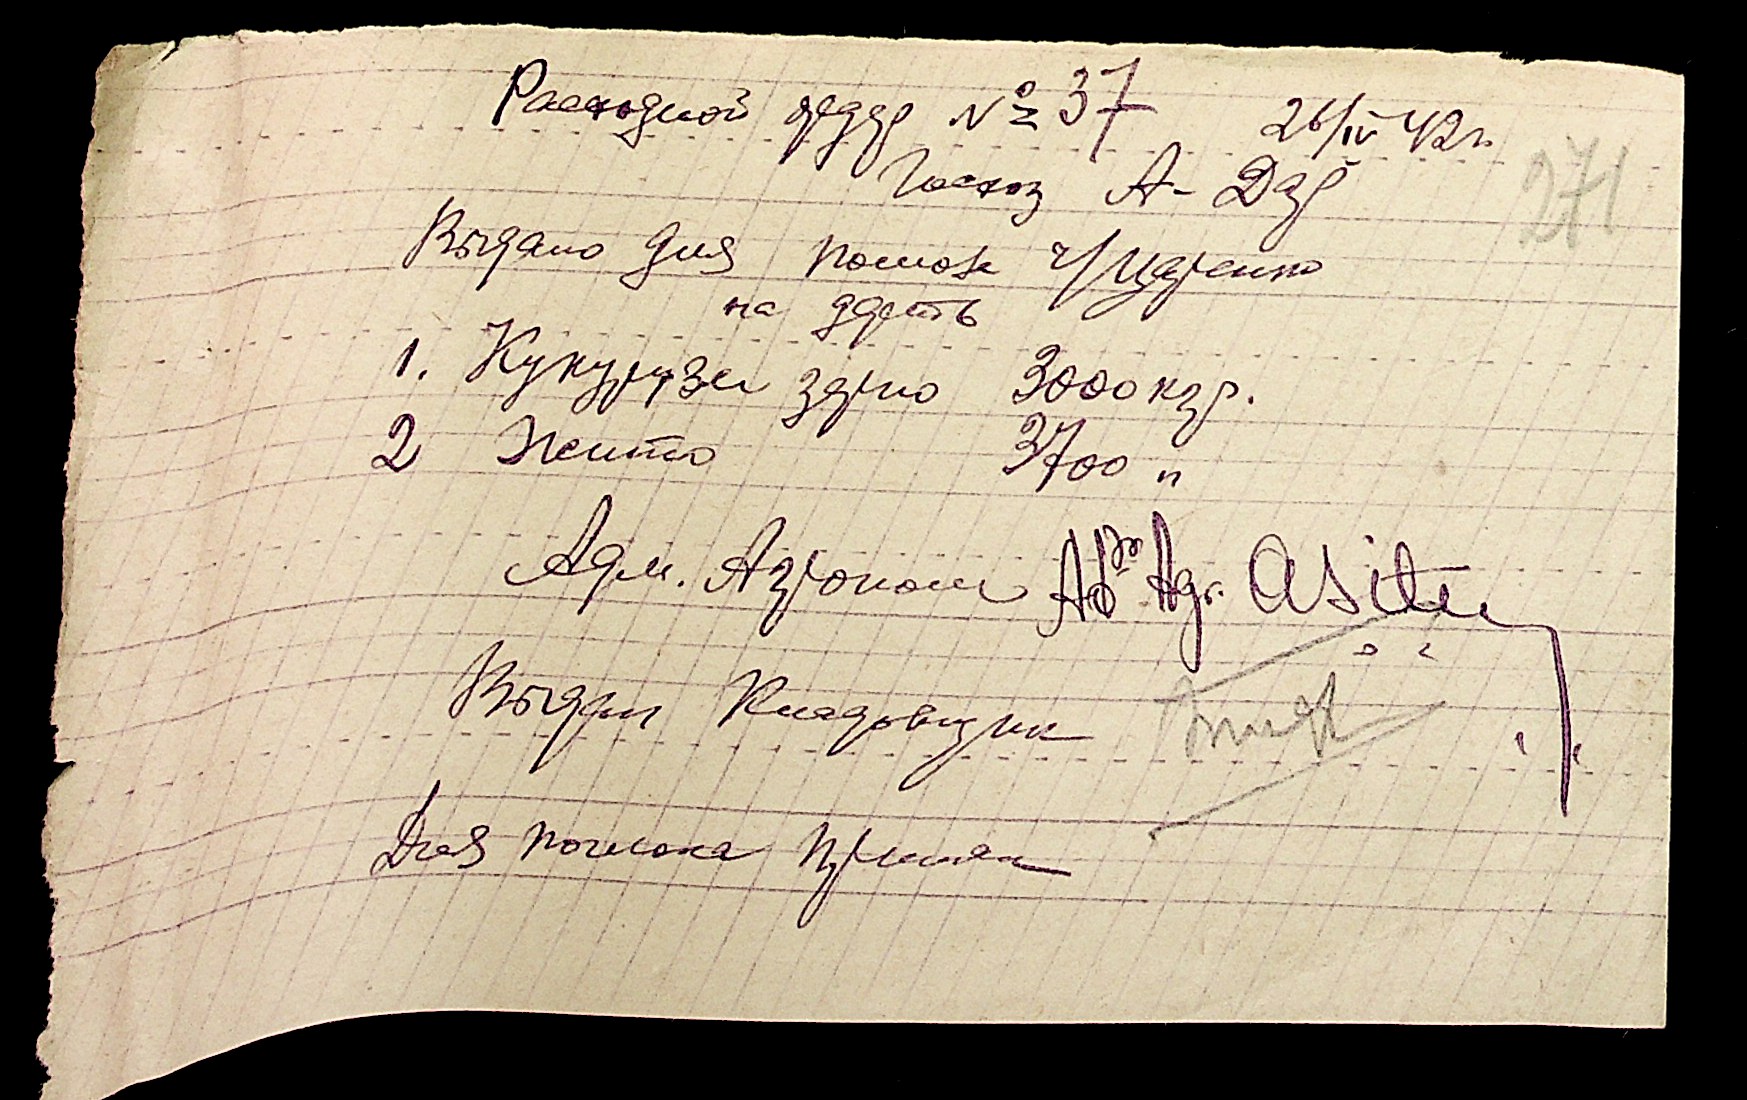 Расходной ордер № 37 26/IV 42 г.
Госхоз А-Дар
271
Выдано для помола ч/Царенко
на дерть
1. Кукурузы зерно 3000 кгр.
2 Жито 3700 "
Адм. Агроном Agr.
Выдал Кладовщик
Для помола принял